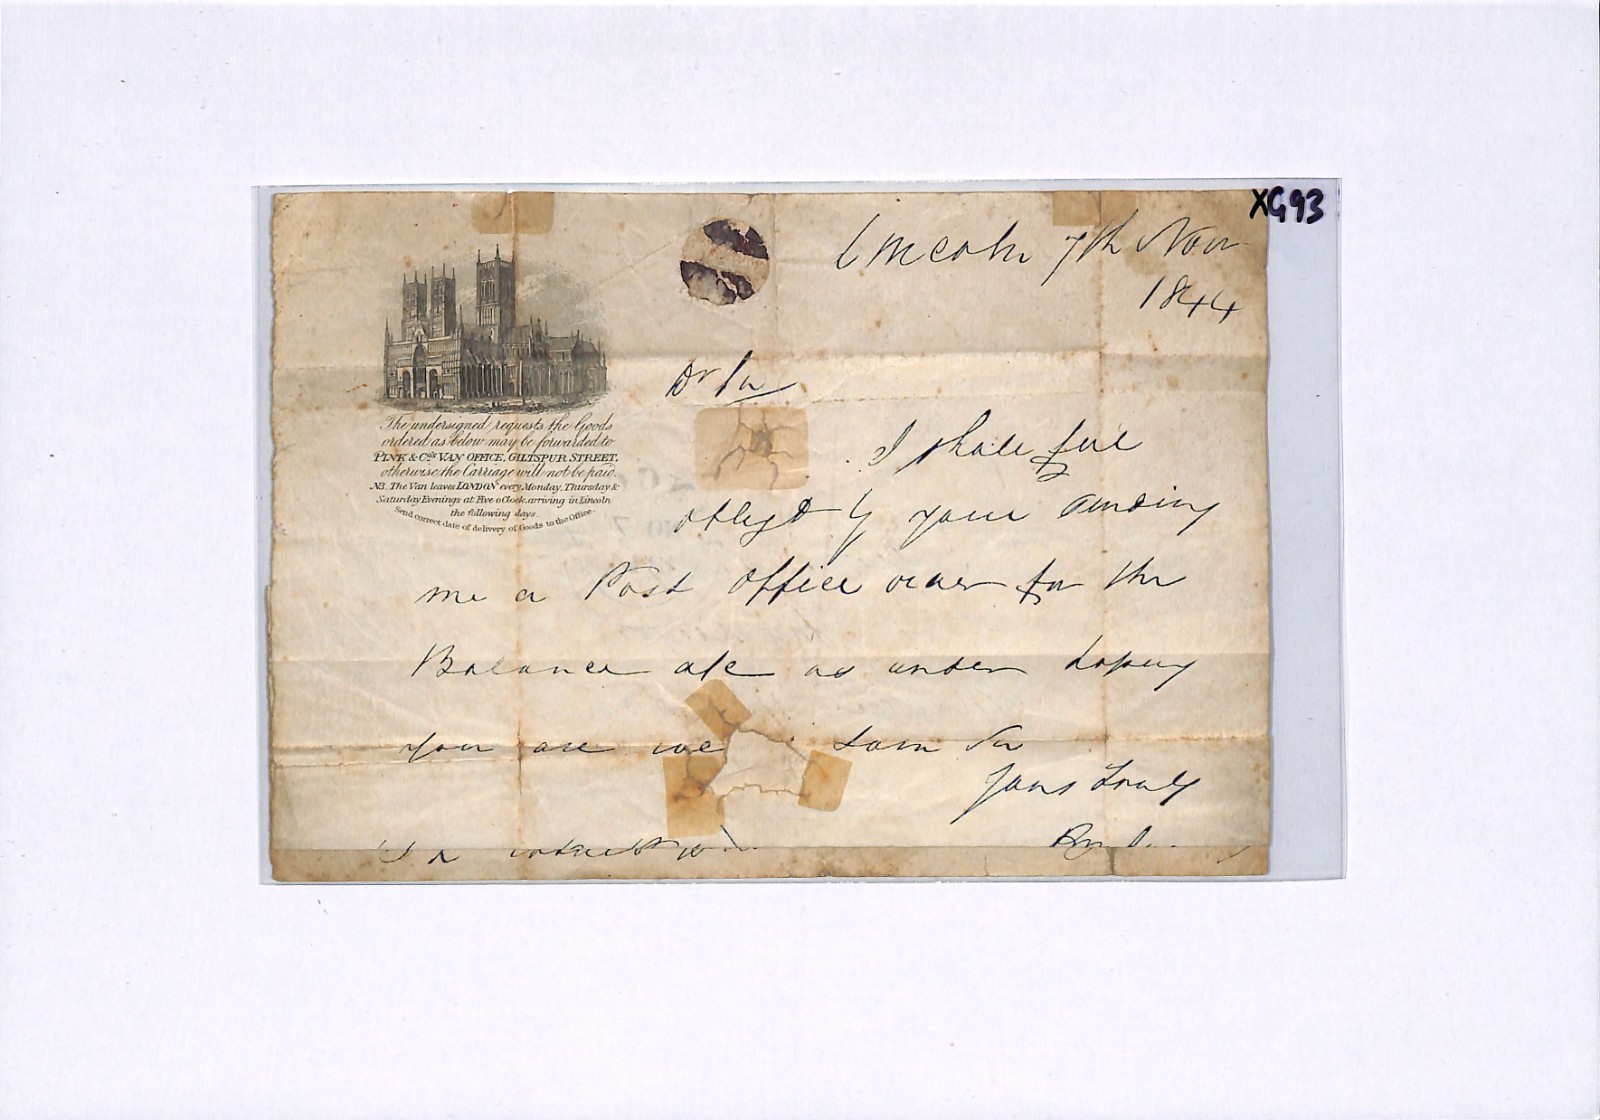 XG93
Lincoln 7th Nov
1844
Dr Sir
The undersigned requests the Goods
ordered as below may be forwarded to
PINK & Co's VAN OFFICE, GILTSPUR STREET,
otherwise the Carriage will not be paid.
NB. The Van leaves LONDON every Monday, Thursday &
Saturday Evenings at Five o'Clock, arriving in Lincoln
the following days.
Send correct date of delivery of Goods to the Office.
I shall feel
obligd by your sending
me a Post Office order for the
Balance a/c as under hoping
you are we I am Sir
Yours Truly